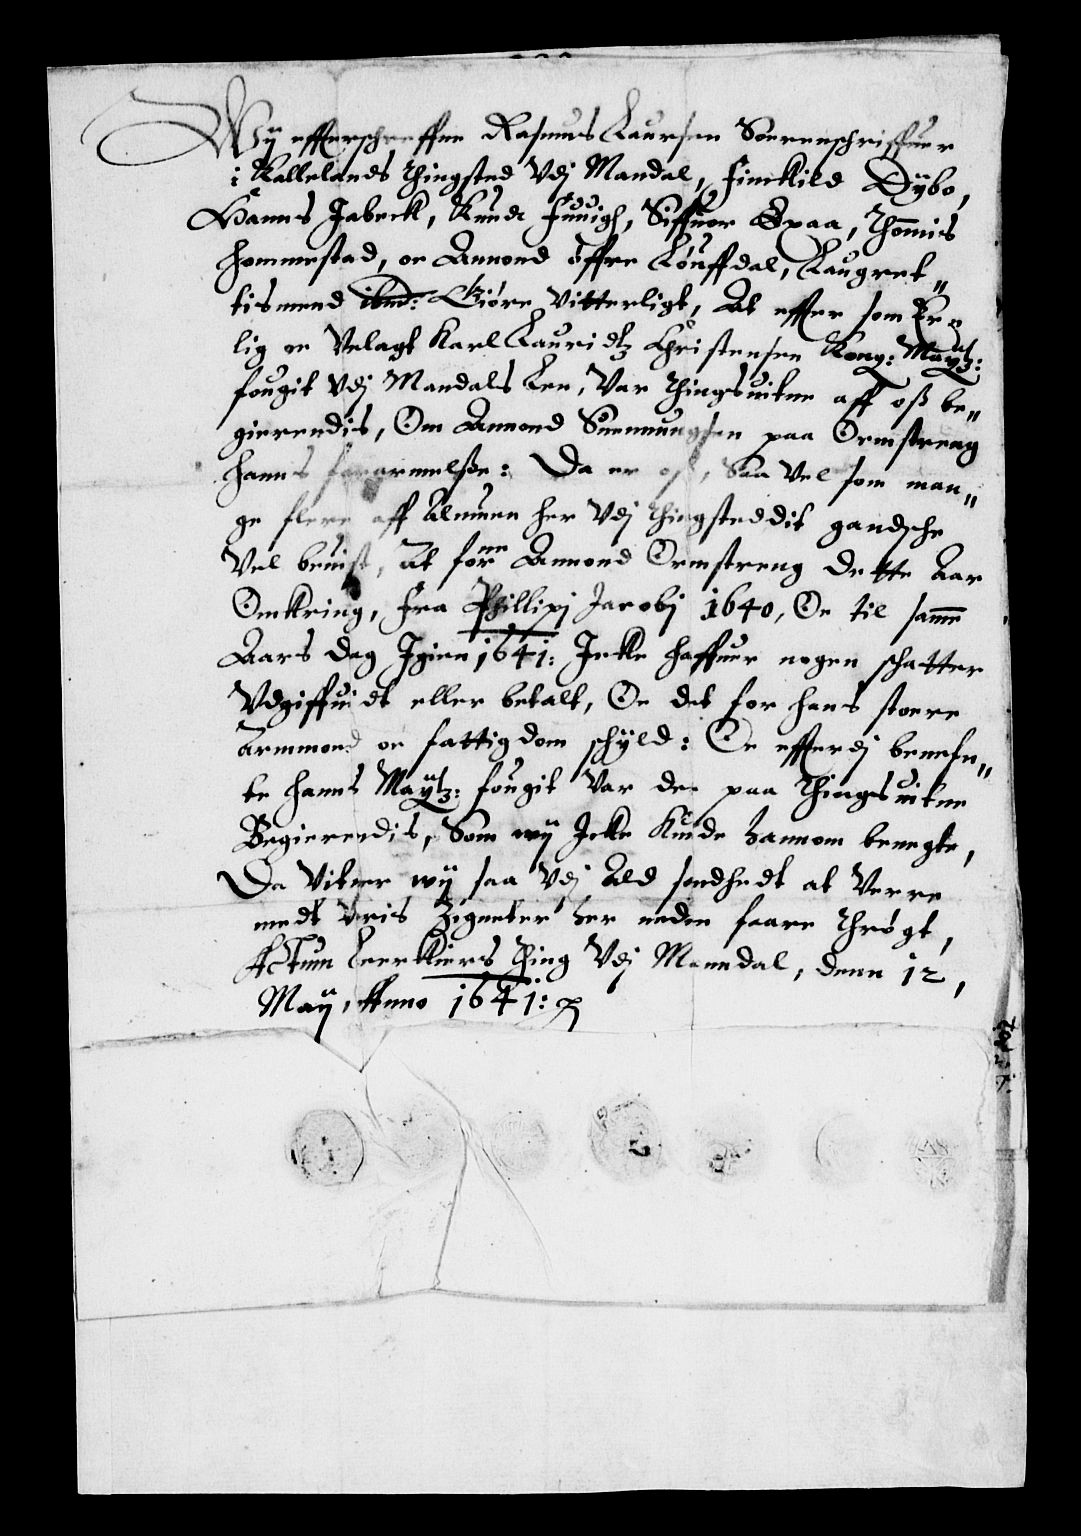 Wÿ effterschreffne Rasmus Laursen Sorrenschriffuer
i Hallelands thingsted Vdj Mandal, Finkild Dÿbo,
Hanns Jabeck, Knud Fuuigh, Siffuer Spaa, Thommis
Hommestad, oc Amond Øffre Løuffdal, Laugret„
tismend ibmd: Giøre Vitterligt, At effter som Er„
lig oc Velagt Karl Lauridtz Christensen Kong: Maÿtz:
fougit Vdj Mandals Len, Var thingsuitne aff oß be„
gierendis, Om Amond Suennungsen paa Ormstreng
hanns forarmelße: Da er oß, Saa Vel som man„
ge flere aff Almuen her Vdj thingsteddit gandsche
Vel beuist, At forne Amond Ormstreng dette Aar
Omkring, fra Phillipj Jacobj 1640, Oc til samme
Aars dag Igien 1641: Icke haffuer nogen schatter
Vdgiffuidt eller betalt, Oc det for hans stoere
Armmod oc fattigdom schÿld: Oc effterdj benefn„
te hanns Maÿtz: fougit Var der paa thingsuitne
Begierendis, Som wÿ Icke Kunde hannom benegte,
Da Vitner wÿ saa Vdj Ald sandhedt at Verre
medt Voris Zigneter her neden faare thrøgt,
Actum Leerkiers thing Vdj Manndal, denn 12,
Maÿ, Anno 1641: